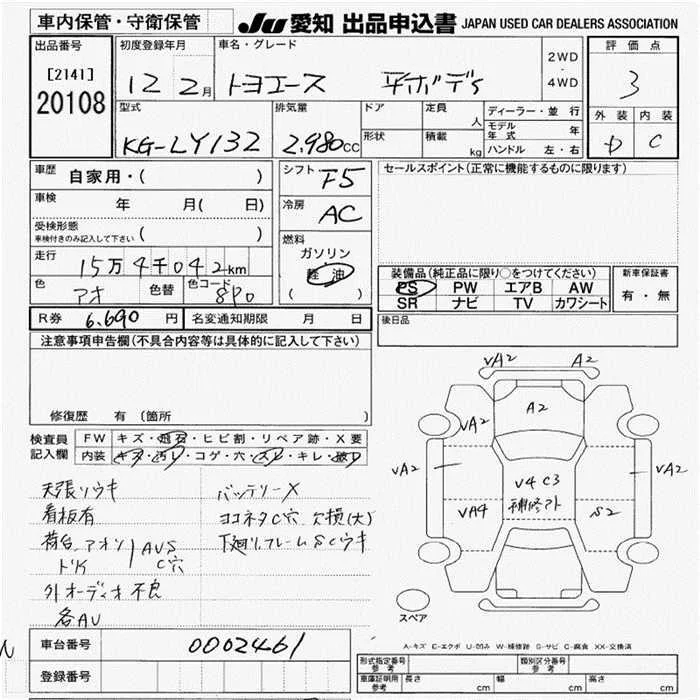 車内保管・守衛保管
JU 愛知 出品申込書 JAPAN USED CAR DEALERS ASSOCIATION
出品番号
[2141]
20108
初度登録年月
12 2月
車名・グレード
トヨエース 平ボディ
2WD
・
4WD
評価点
3
外装 内装
D C
型式
KG-LY132
排気量
2.980cc
ドア
形状
定員
人
積載
kg
ディーラー・並行
モデル年式 年
ハンドル 左・右
車歴
自家用・( )
車検
年 月( 日)
受検形態
車検付きのみ記入して下さい ( )
走行
15万4千042km
色
アオ
色替
色コード
8P0
シフト
F5
冷房
AC
燃料
ガソリン
軽油
( )
セールスポイント(正常に機能するものに限ります)
装備品(純正品に限り○をつけてください)
PS PW エアB AW
SR ナビ TV カワシート
新車保証書
有・無
R券 6.690円
名変通知期限 月 日
後日品
注意事項申告欄(不具合内容等は具体的に記入して下さい)
修復歴 有 (箇所 )
検査員
記入欄
FW キズ・飛石・ヒビ割・リペア跡・X要
内装 キズ・汚レ・コゲ・穴・スレ・キレ・破レ
天張ソウキ
看板有
荷台、アオリ
AVS
C穴
外オーディオ不良
各AU
バッテリーX
ヨコネタC穴、欠損(大)
下廻リ、フレームSCウキ
VA2 A2
A2
VA2
VA2
V4 C3
補修アト
VA4
S2
VA2
スペア
A-キズ E-エクボ U-凹み W-補修跡 S-サビ C-腐食 XX-交換済
車台番号
0002461
登録番号
型式指定番号
参考
類別区分番号
参考
車庫証明用
参考
長さ cm
幅 cm
高さ cm